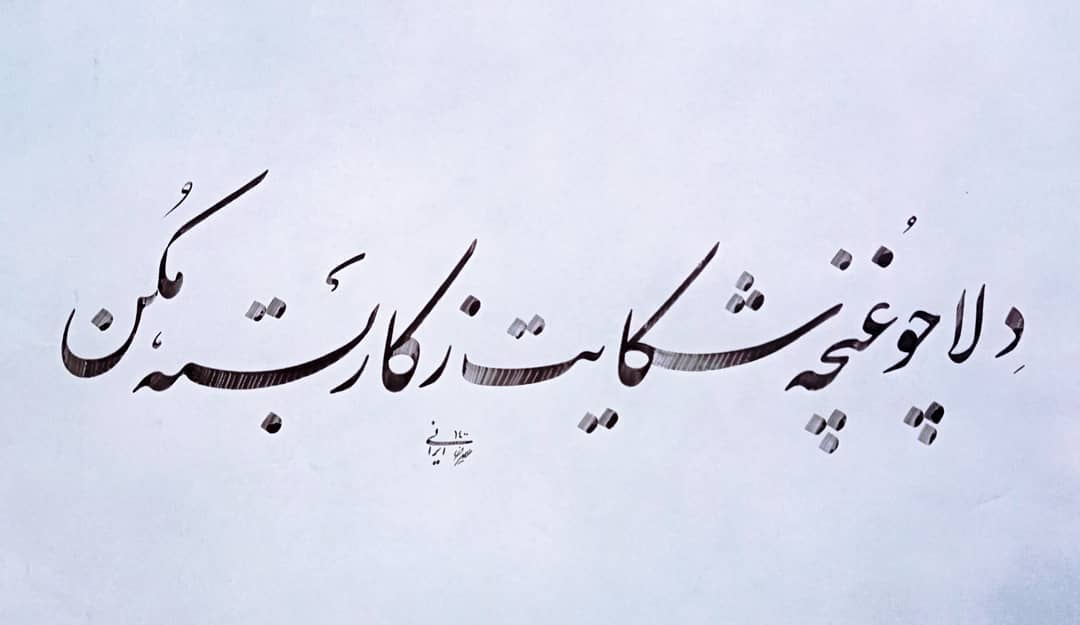 دِلا چو غُنچه شکایت ز کار بسته مَکُن
ایرانی ۱۴۰۰